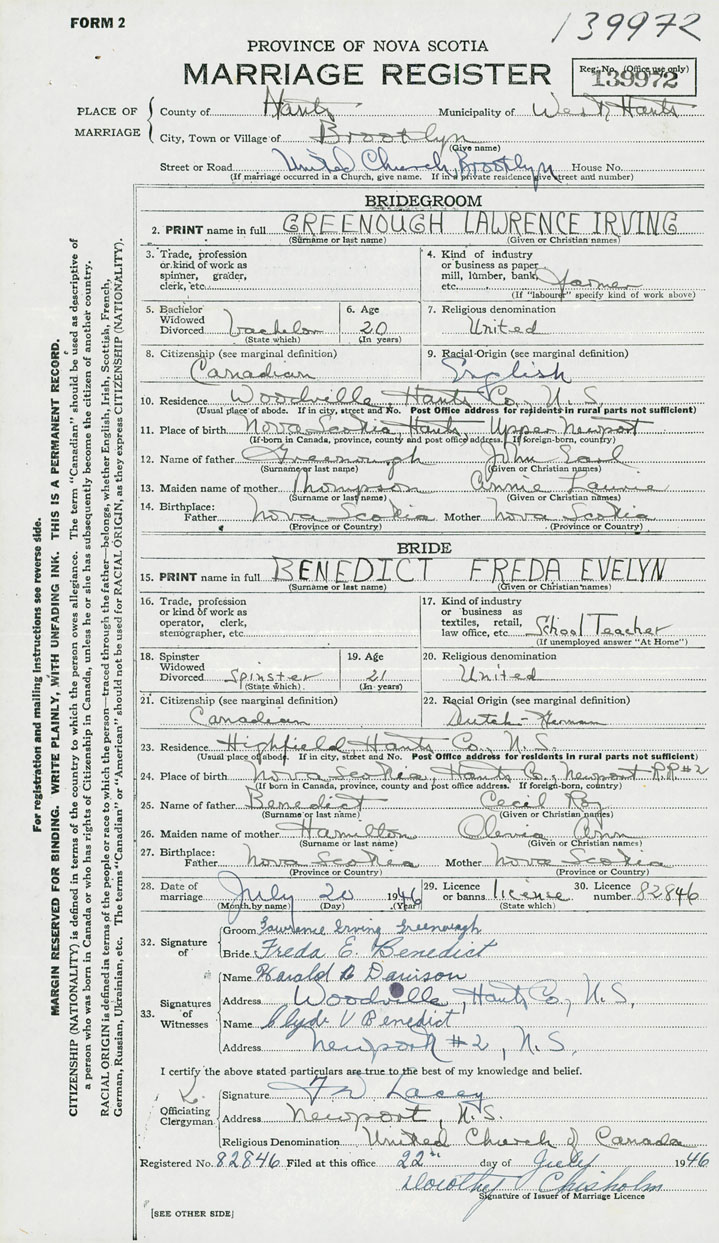 FORM 2
139972
PROVINCE OF NOVA SCOTIA
MARRIAGE REGISTER
Reg. No. (Office use only)
139972
PLACE OF MARRIAGE
County of Hants Municipality of West Hants
City, Town or Village of Brooklyn
(Give name)
Street or Road United Church, Brooklyn House No.
(If marriage occurred in a Church, give name. If in a private residence give street and number)
BRIDEGROOM
2. PRINT name in full GREENOUGH LAWRENCE IRVING
(Surname or last name) (Given or Christian names)
3. Trade, profession or kind of work as spinner, grader, clerk, etc.
4. Kind of industry or business as paper mill, lumber, bank, etc. farmer
(If "labourer" specify kind of work above)
5. Bachelor Widowed Divorced bachelor
(State which)
6. Age 20
(In years)
7. Religious denomination
United
8. Citizenship (see marginal definition)
Canadian
9. Racial Origin (see marginal definition)
English
10. Residence Woodville Hants Co., N.S.
(Usual place of abode. If in city, street and No. Post Office address for residents in rural parts not sufficient)
11. Place of birth Nova Scotia, Hants Upper Newport
(If born in Canada, province, county and post office address. If foreign-born, country)
12. Name of father Greenough John Earl
(Surname or last name) (Given or Christian names)
13. Maiden name of mother Thompson Annie Laurie
(Surname or last name) (Given or Christian names)
14. Birthplace: Father Nova Scotia Mother Nova Scotia
(Province or Country) (Province or Country)
BRIDE
15. PRINT name in full BENEDICT FREDA EVELYN
(Surname or last name) (Given or Christian names)
16. Trade, profession or kind of work as operator, clerk, stenographer, etc.
17. Kind of industry or business as textiles, retail, law office, etc. School Teacher
(If unemployed answer "At Home")
18. Spinster Widowed Divorced Spinster
(State which)
19. Age 21
(In years)
20. Religious denomination
United
21. Citizenship (see marginal definition)
Canadian
22. Racial Origin (see marginal definition)
Dutch-German
23. Residence Highfield, Hants Co., N.S.
(Usual place of abode. If in city, street and No. Post Office address for residents in rural parts not sufficient)
24. Place of birth Nova Scotia, Hants Co., Newport R.R #2
(If born in Canada, province, county and post office address. If foreign-born, country)
25. Name of father Benedict Cecil Roy
(Surname or last name) (Given or Christian names)
26. Maiden name of mother Hamilton Ann
(Surname or last name) (Given or Christian names)
27. Birthplace: Father Nova Scotia Mother Nova Scotia
(Province or Country) (Province or Country)
28. Date of marriage July 20 1946
(Month by name) (Day) (Year)
29. Licence or banns license
(State which)
30. Licence number 82846
32. Signature of
Groom Lawrence Irving Greenough
Bride Freda E. Benedict
33. Signatures of Witnesses
Name Harald Davison
Address Woodville, Hants Co., N.S.
Name Clyde V Benedict
Address Newport #2, N.S.
I certify the above stated particulars are true to the best of my knowledge and belief.
Officiating Clergyman
Signature Lacey
Address Newport, N.S.
Religious Denomination United Church of Canada
Registered No. 82846 Filed at this office 22nd day of July 1946
Dorothy Chisholm
Signature of Issuer of Marriage Licence
[SEE OTHER SIDE]
For registration and mailing instructions see reverse side.
MARGIN RESERVED FOR BINDING. WRITE PLAINLY, WITH UNFADING INK. THIS IS A PERMANENT RECORD.
CITIZENSHIP (NATIONALITY) is defined in terms of the country to which the person owes allegiance. The term "Canadian" should be used as descriptive of
a person who was born in Canada or who has rights of Citizenship in Canada, unless he or she has subsequently become the citizen of another country.
RACIAL ORIGIN is defined in terms of the people or race to which the person—traced through the father—belongs, whether English, Irish, Scottish, French,
German, Russian, Ukrainian, etc. The terms "Canadian" or "American" should not be used for RACIAL ORIGIN, as they express CITIZENSHIP (NATIONALITY).